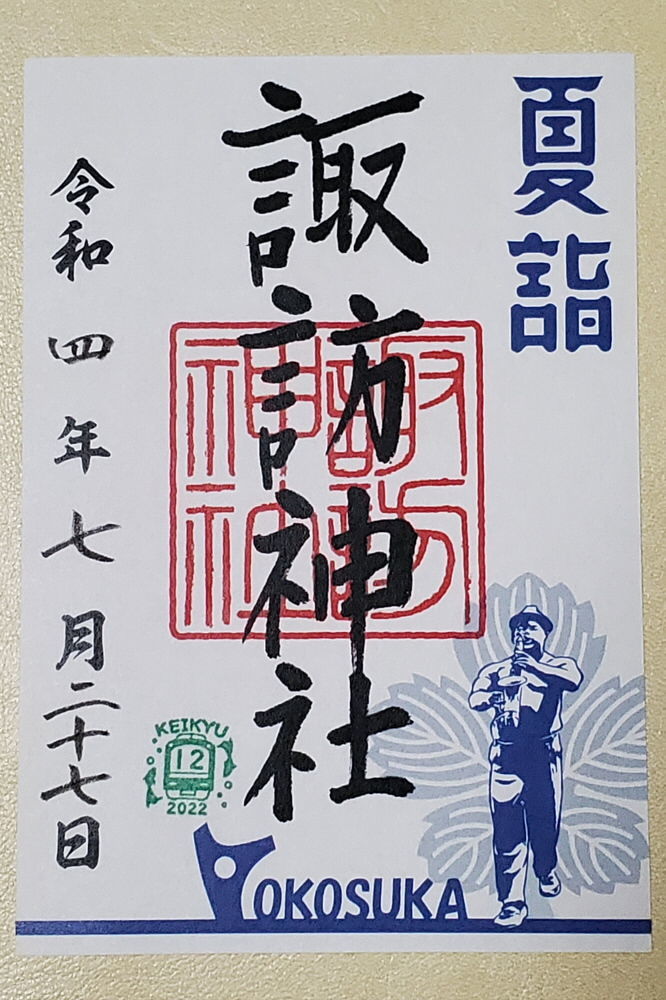 夏詣
諏訪神社
諏訪
神社
令和四年七月二十七日
KEIKYU
12
2022
YOKOSUKA